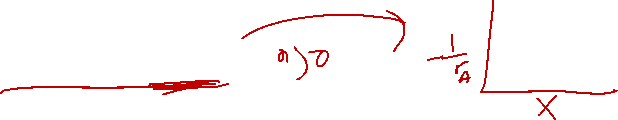 n>0
1/r_A
X